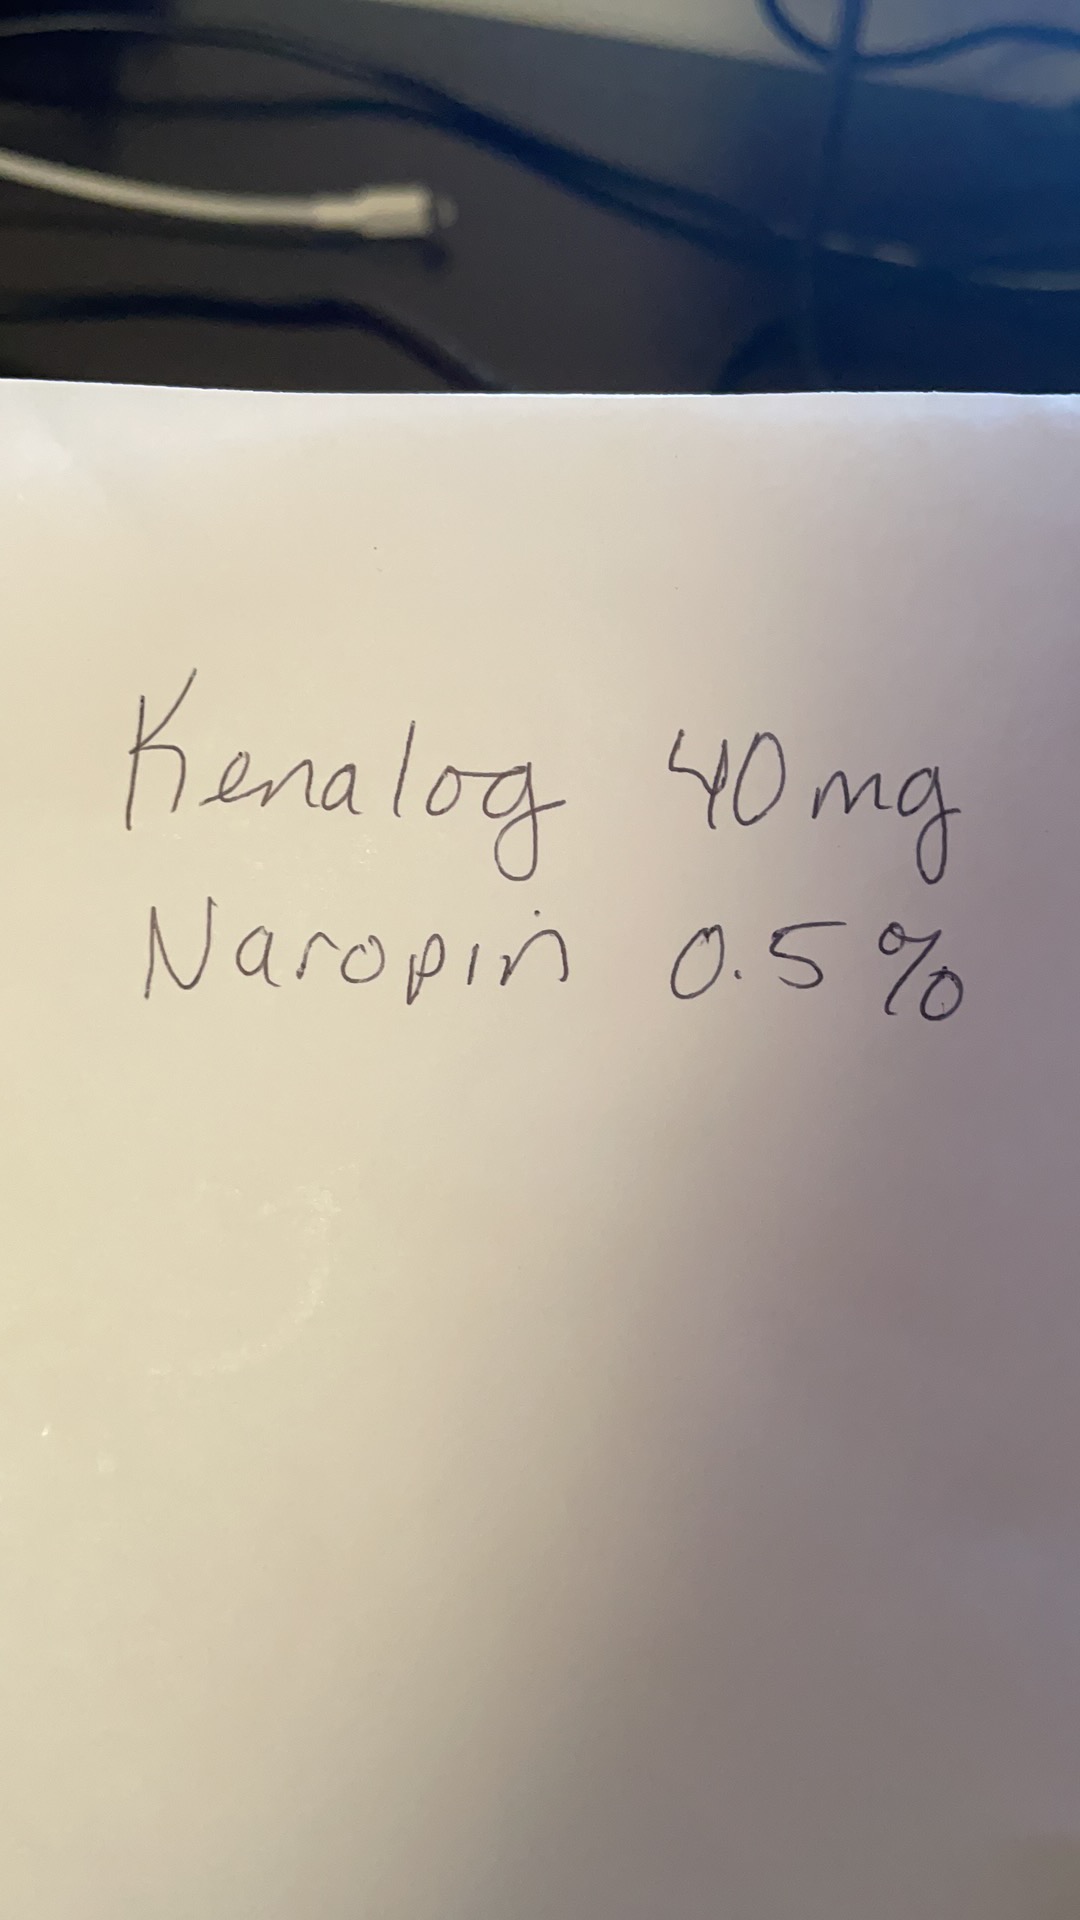 Kenalog 40mg
Naropin 0.5%